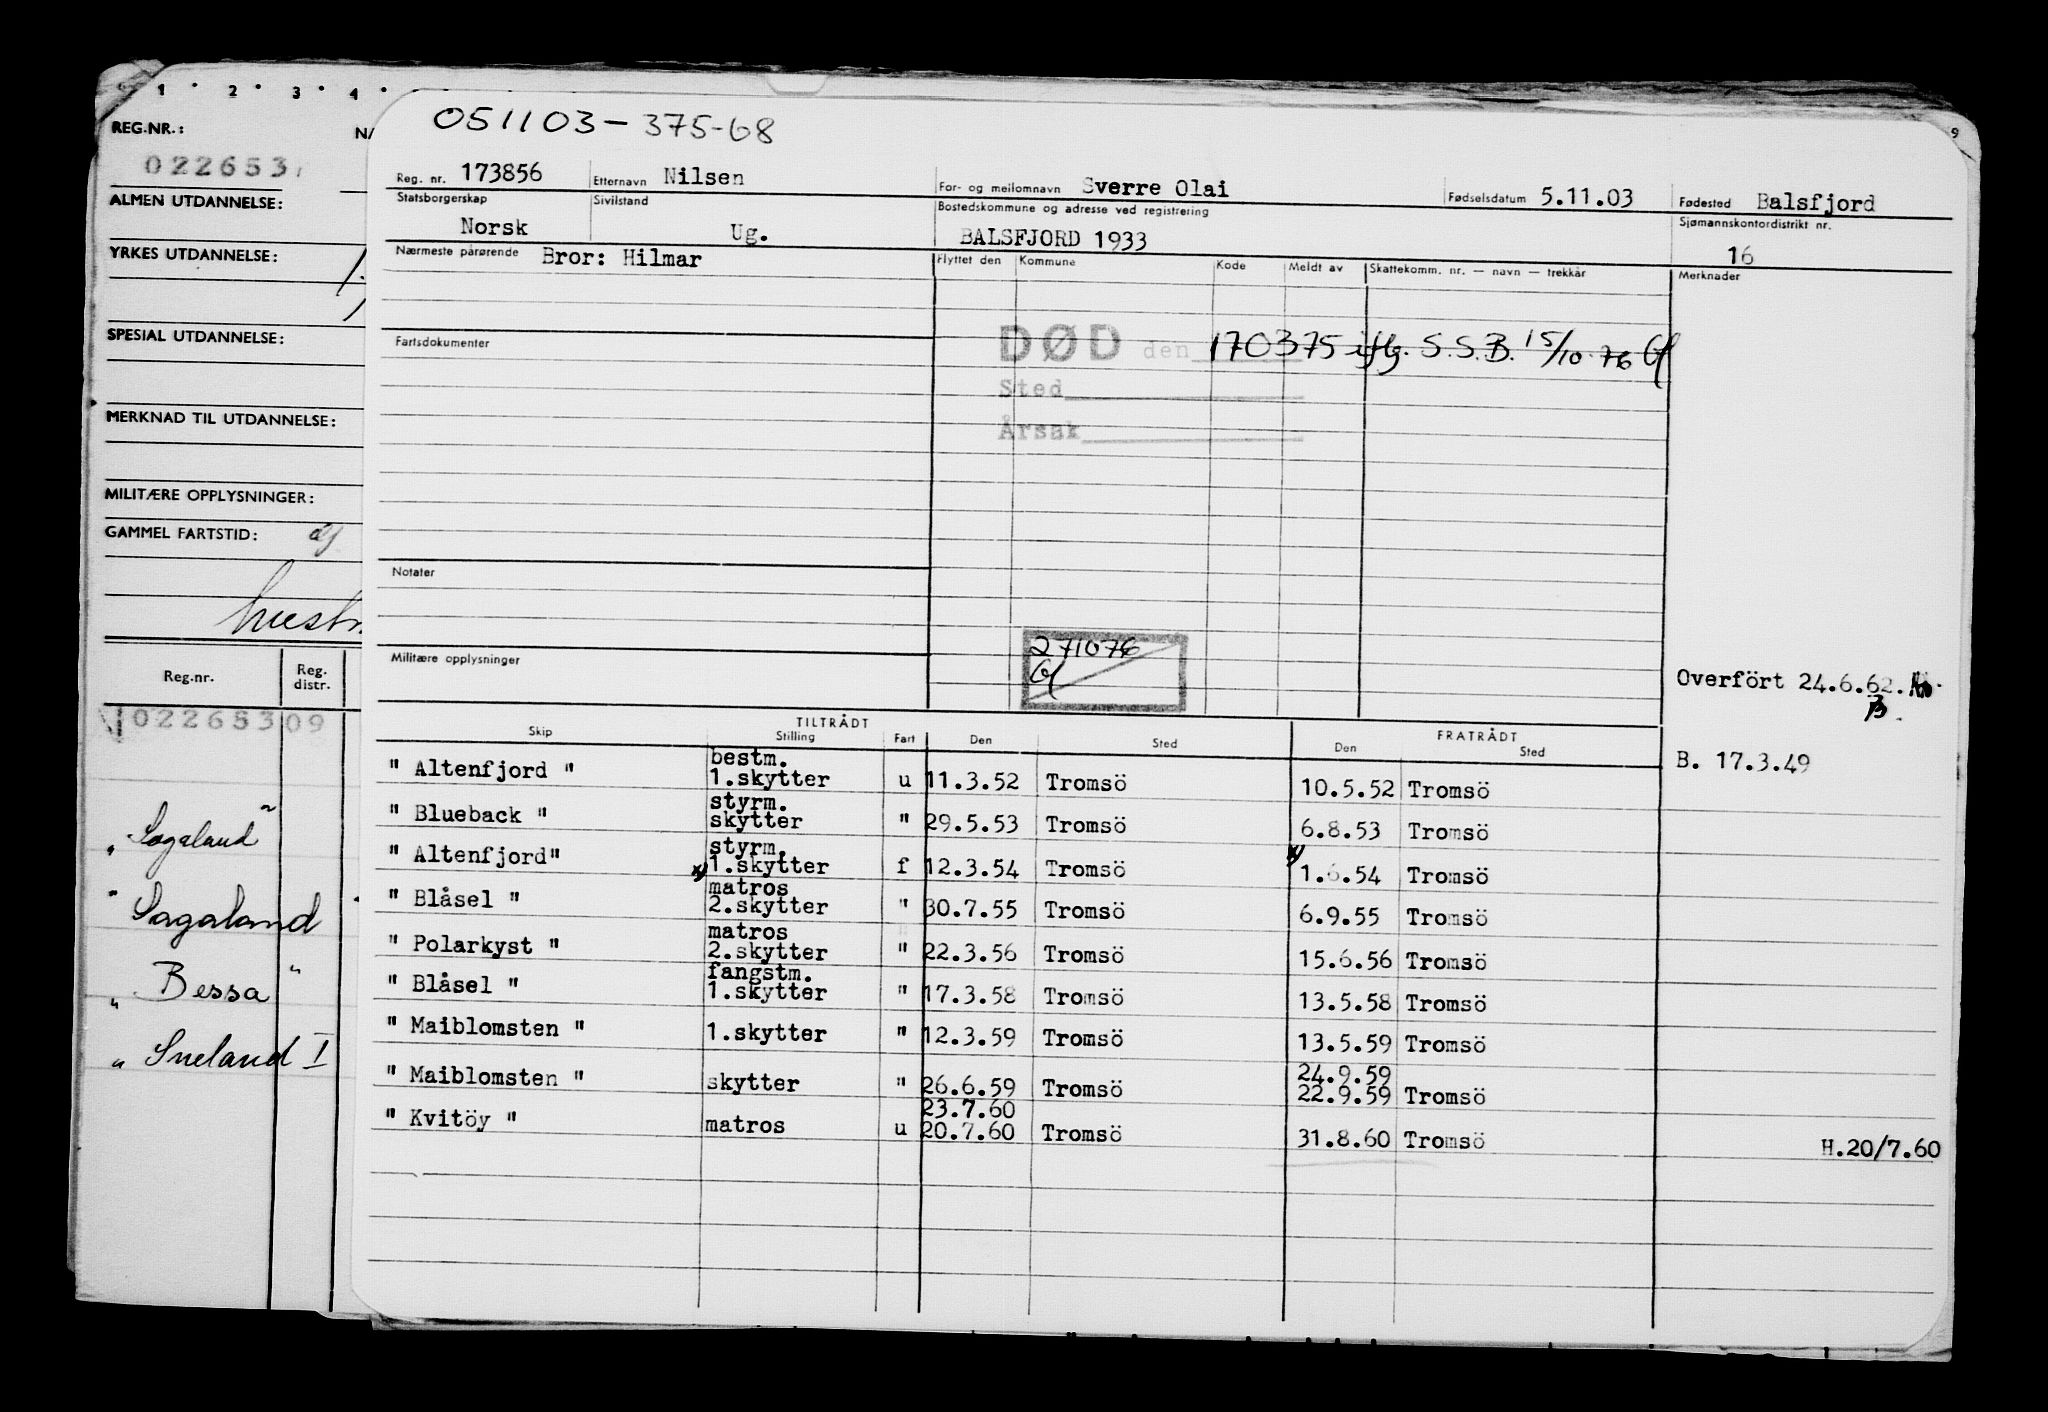 1 2 3 4
9
REG.NR.:
022653
ALMEN UTDANNELSE:
YRKES UTDANNELSE:
SPESIAL UTDANNELSE:
MERKNAD TIL UTDANNELSE:
MILITÆRE OPPLYSNINGER:
GAMMEL FARTSTID:
Reg.nr. Reg. distr.
022653 09
"Sagaland"
"Sagaland
"Bessa"
"Sneland I
051103-375-68
Reg. nr. 173856 Etternavn Nilsen For- og mellomnavn Sverre Olai Fødselsdatum 5.11.03 Fødested Balsfjord
Statsborgerskap Sivilstand Bostedskommune og adresse ved registrering Sjømannskontordistrikt nr.
Norsk Ug. BALSFJORD 1933 16
Nærmeste pårørende Bror: Hilmar Flyttet den Kommune Kode Meldt av Skattekomm. nr. — navn — trekkår Merknader
Fartsdokumenter
DØD den 170375 iflg. S.S.B. 15/10.76
Sted
Årsak
Notater
271076
Militære opplysninger
Overfört 24.6.62.
TILTRÅDT FRATRÅDT
Skip Stilling Fart Den Sted Den Sted
B. 17.3.49
bestm.
" Altenfjord " 1.skytter u 11.3.52 Tromsö 10.5.52 Tromsö
styrm.
" Blueback " skytter " 29.5.53 Tromsö 6.8.53 Tromsö
styrm.
" Altenfjord" x) 1.skytter f 12.3.54 Tromsö x) 1.6.54 Tromsö
matros
" Blåsel " 2.skytter " 30.7.55 Tromsö 6.9.55 Tromsö
matros
" Polarkyst " 2.skytter " 22.3.56 Tromsö 15.6.56 Tromsö
fangstm.
" Blåsel " 1.skytter " 17.3.58 Tromsö 13.5.58 Tromsö
" Maiblomsten " 1.skytter " 12.3.59 Tromsö 13.5.59 Tromsö
24.9.59
" Maiblomsten " skytter " 26.6.59 Tromsö 22.9.59 Tromsö
23.7.60
" Kvitöy " matros u 20.7.60 Tromsö 31.8.60 Tromsö H.20/7.60